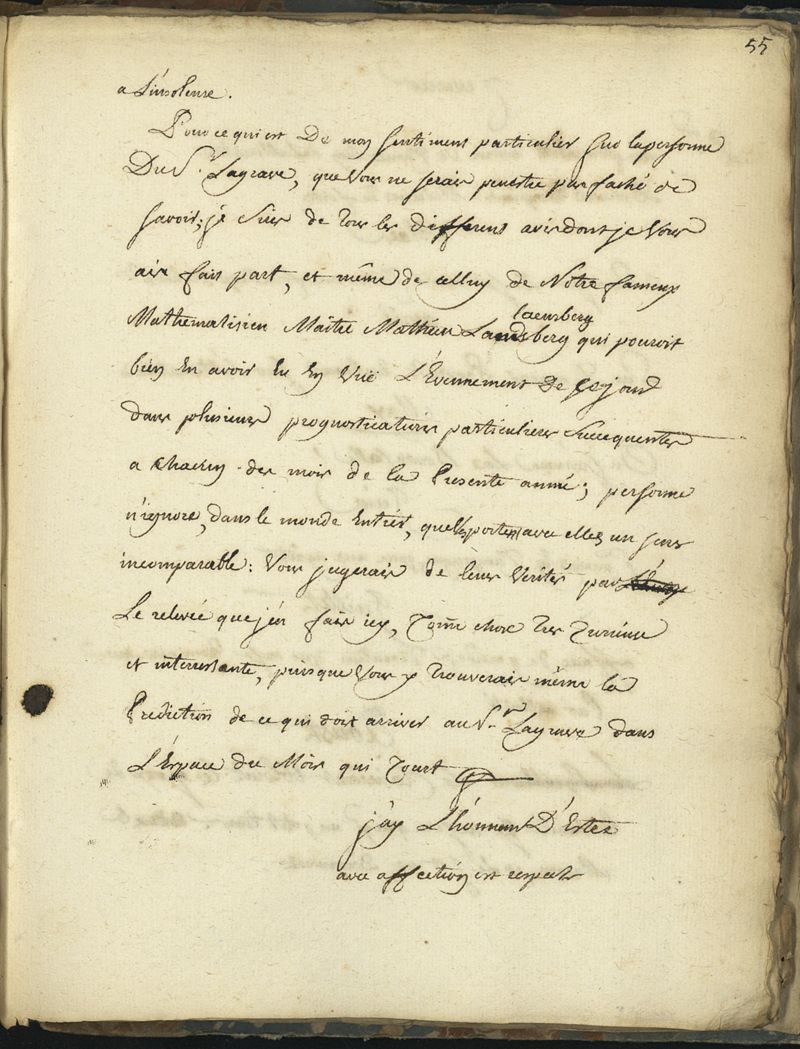 55
a L'insolense.
Pour ce qui est De mon sentiment particulier sur la personne
Du Sr. Lagrave, que vous ne serais peutetre pas faché de
savoir; je suis de tous les different avis dont je vous
aie fais part, et même de celluy de Notre fameux
Mathematisien Maitre Mathieu Lansberg qui pouroit
laensberg
bien En avoir Eu En vuë L'Evennement De ce jour
dans plusieurs prognostications particulieres Sucequentes
a chacun des mois de la Presente anné; personne
n'ignore, dans le monde Entiér, quells portent avec elles un sens
incomparable: Vous jugerais de leurs verités par
Le relevée que j'en fais icy, Comme chose Tres Curieuse
et interessante, puisque Vous y Trouverais même la
Prediction de ce qui doit arriver au Sr. Lagrave dans
L'Espace du Mois qui Court
j'ay L'honneur D'Estre
avec affection est respect